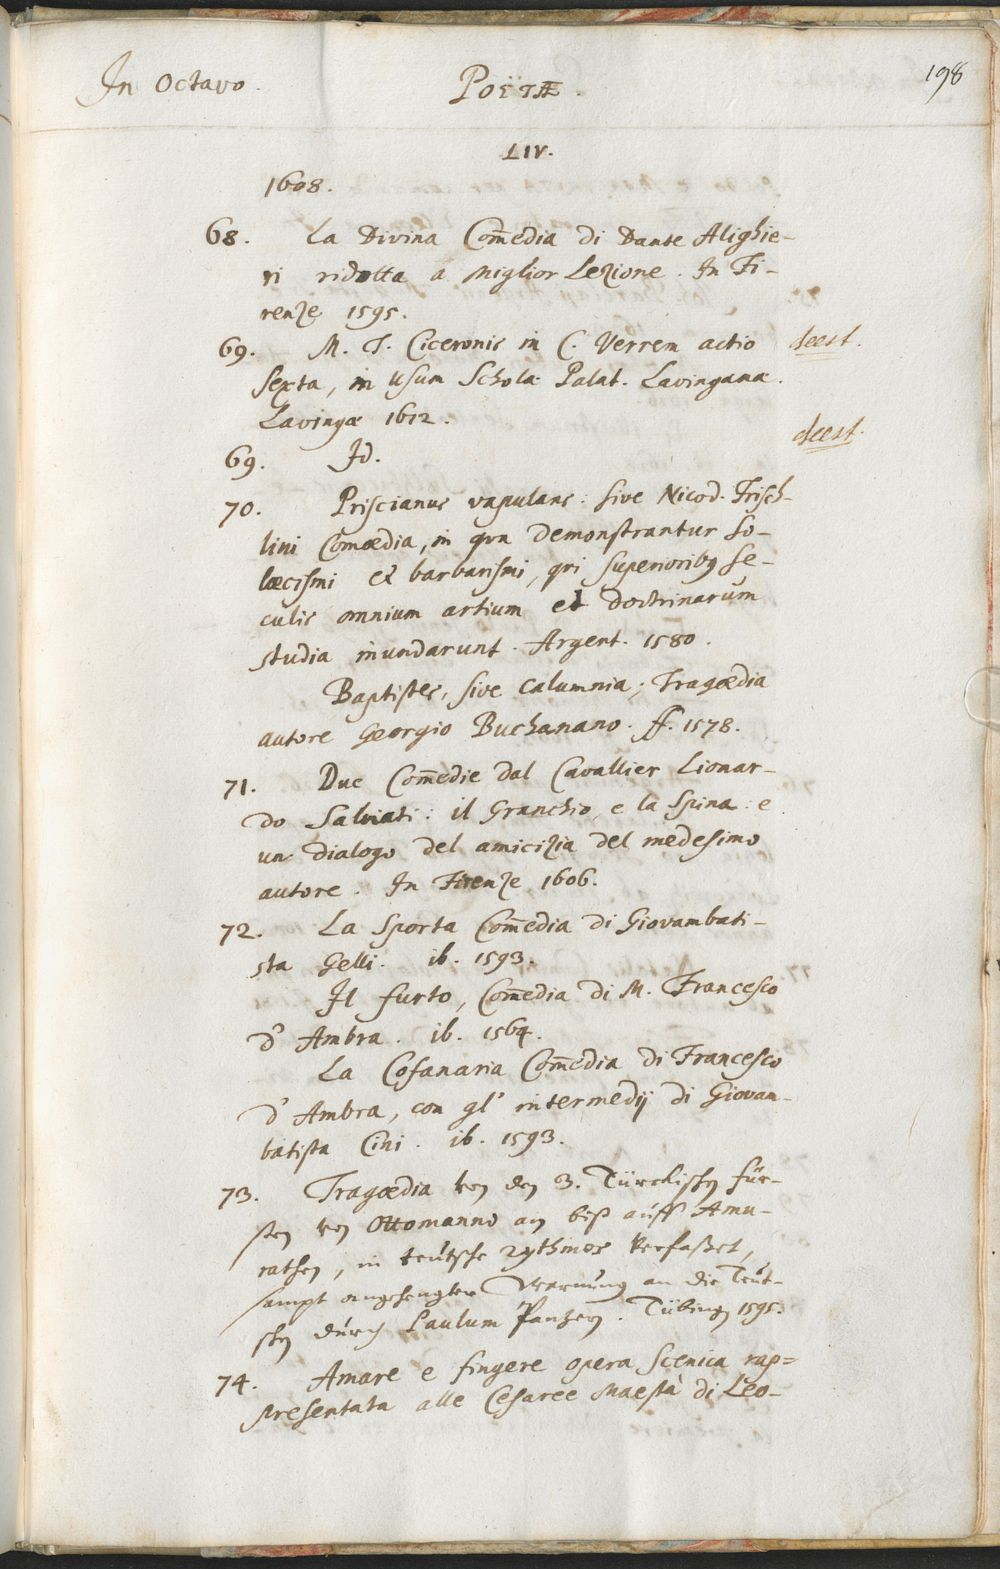 In Octavo.
POËTÆ.
198
LIV.
1608.
68. La Divina Com̄edia di Dante Alighie-
ri ridotta a miglior Lezione. In Fi-
renze 1595.
69. M. T. Ciceronis in C. Verrem actio deest.
sexta, in usum Scholæ Palat. Lavinganæ.
Lavingæ 1612.
deest.
69. Id.
70. Priscianus vapulans: sive Nicod. Frisch-
lini Comœdia, in qva demonstrantur so-
lœcismi et barbarismi, qvi superioribꝰ se-
culis omnium artium et doctrinarum
studia inundarunt. Argent. 1580.
Baptistes, sive calumnia; Tragœdia
autore Georgio Buchanano. ff. 1578.
71. Due Com̄edie dal Cavallier Lionar-
do Salviati: il Granchio, e la Spina: e
un dialogo del amicizia del medesimo
autore. In Firenze 1606.
72. La Sporta Com̄edia di Giovambati-
sta Gelli. ib. 1593.
Il furto, Com̄edia di M. Francesco
d'Ambra. ib. 1564.
La Cofanaria Com̄edia di Francesco
d'Ambra, con gl' intermedij di Giovan-
batista Cini. ib. 1593.
73. Tragœdia von den 3. Türckischen für-
sten von Ottomanno an biß auff Amu-
rathen, in teutsche rythmos verfaßet,
sampt angehengter Warnung an die Teut-
schen durch Paulum Panzen. Tübingen 1595.
74. Amare e fingere opera scenica rap=
presentata alle Cesaree Maestà di Leo-